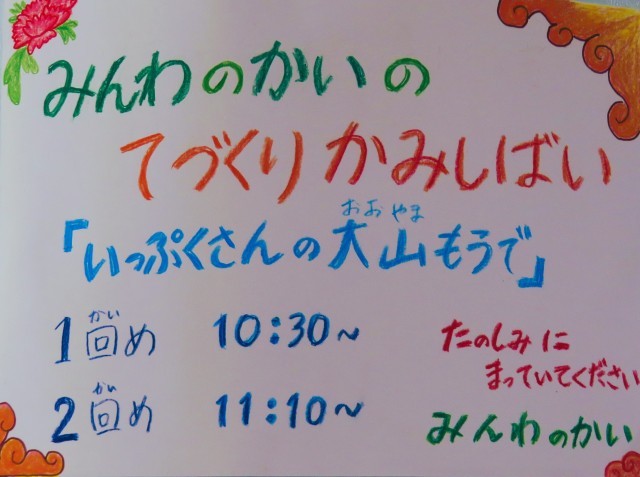 みんわのかいの
てづくりかみしばい
おおやま
「いっぷくさんの大山もうで」
かい
1回め 10:30~
たのしみに
まっていてください
かい
2回め 11:10~
みんわのかい